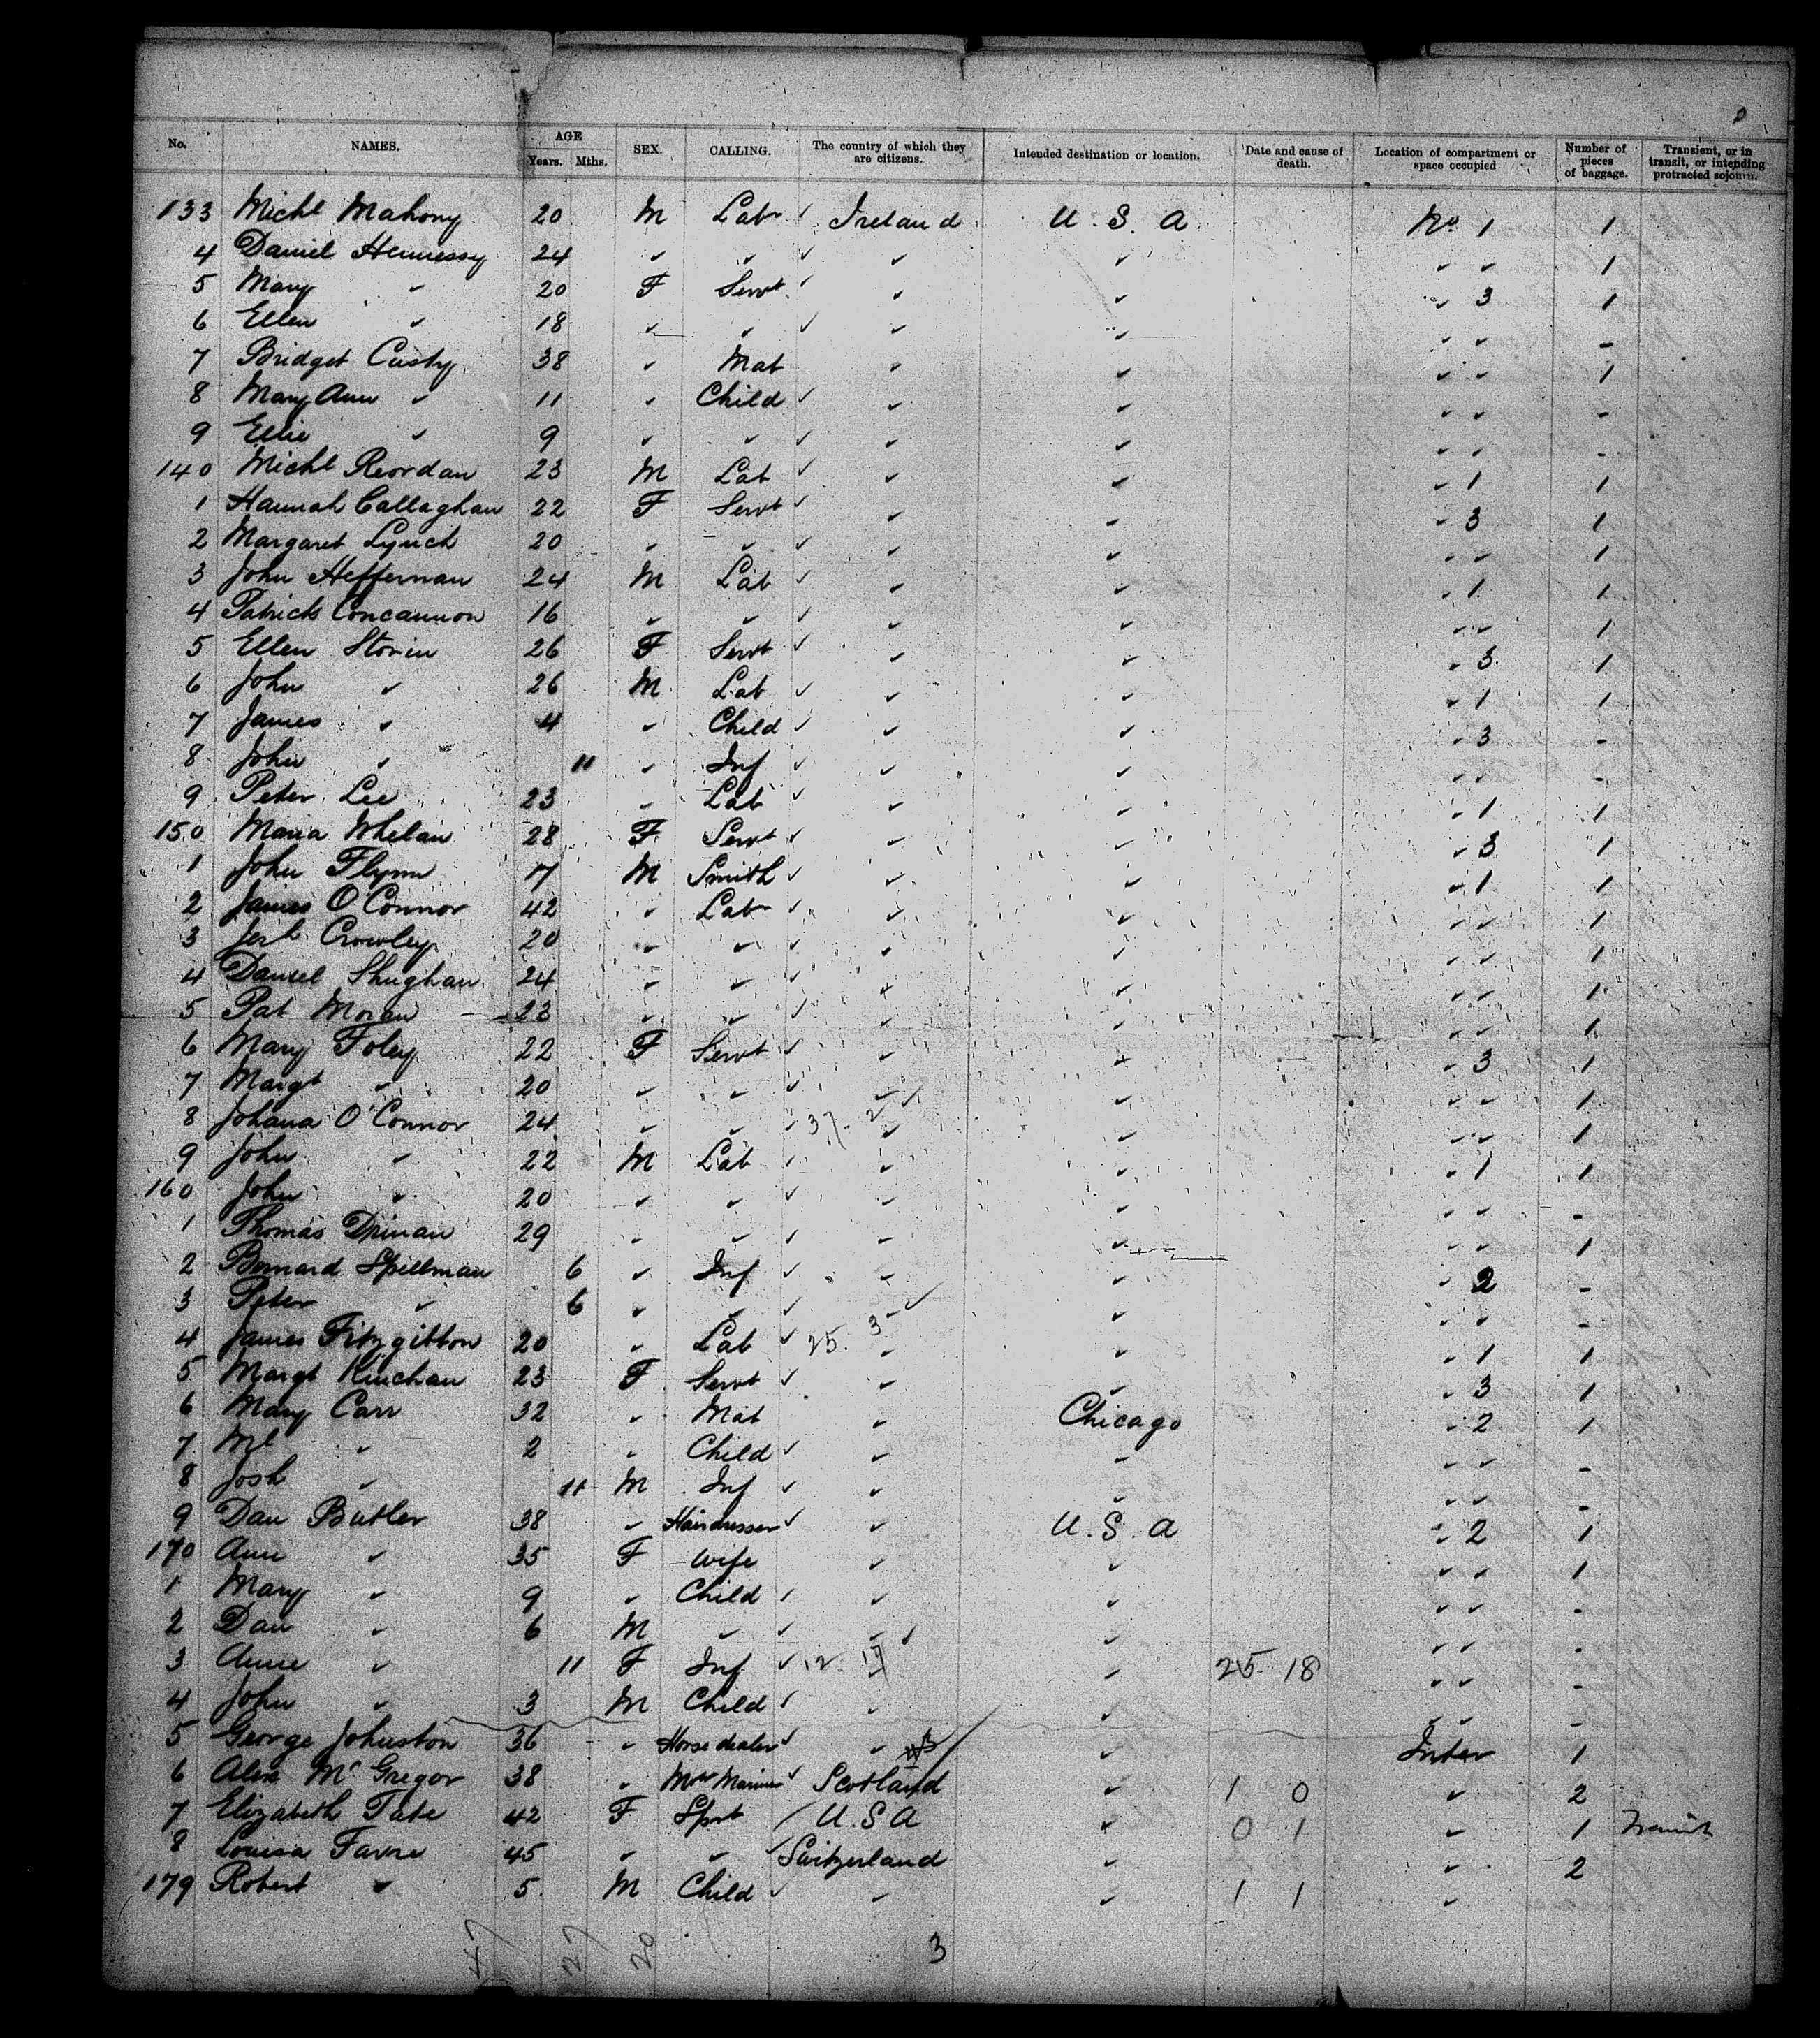 No. NAMES. AGE Years. Mths. SEX. CALLING. The country of which they are citizens. Intended destination or location. Date and cause of death. Location of compartment or space occupied Number of pieces of baggage. Transient, or in transit, or intending protracted sojourn.
133 Michl Mahony 20 M Labr ✓ Ireland U. S. A No. 1 1
4 Daniel Hennessy 24 ✓ ✓ ✓ ✓ ✓ ✓ ✓ 1
5 Mary ✓ 20 F Servt ✓ ✓ ✓ ✓ 3 1
6 Ellen ✓ 18 ✓ ✓ ✓ ✓ ✓ ✓ ✓ -
7 Bridget Custy 38 ✓ Mat ✓ ✓ ✓ ✓ 1
8 Mary Ann ✓ 11 ✓ Child ✓ ✓ ✓ ✓ ✓ -
9 Ellie ✓ 9 ✓ ✓ ✓ ✓ ✓ ✓ ✓ -
140 Michl Reordan 23 M Lab ✓ ✓ ✓ ✓ 1 1
1 Hannah Callaghan 22 F Servt ✓ ✓ ✓ ✓ 3 1
2 Margaret Lynch 20 ✓ ✓ ✓ ✓ ✓ ✓ ✓ 1
3 John Heffernan 24 M Lab ✓ ✓ ✓ ✓ 1 1
4 Patrick Concannon 16 ✓ ✓ ✓ ✓ ✓ ✓ ✓ 1
5 Ellen Storin 26 F Servt ✓ ✓ ✓ ✓ 3 1
6 John ✓ 26 M Lab ✓ ✓ ✓ ✓ 1 1
7 James ✓ 4 ✓ Child ✓ ✓ ✓ ✓ 3 -
8 John ✓ 11 ✓ Inf ✓ ✓ ✓ ✓ ✓ -
9 Peter Lee 23 ✓ Lab ✓ ✓ ✓ ✓ 1 1
150 Maria Whelan 28 F Servt ✓ ✓ ✓ ✓ 3 1
1 John Flynn 17 M Smith ✓ ✓ ✓ ✓ 1 1
2 James O'Connor 42 ✓ Labr ✓ ✓ ✓ ✓ ✓ 1
3 Jerh Crowley 20 ✓ ✓ ✓ ✓ ✓ ✓ ✓ 1
4 Daniel Shughan 24 ✓ ✓ ✓ ✓ ✓ ✓ ✓ 1
5 Pat Moran 23 ✓ ✓ ✓ ✓ ✓ ✓ ✓ 1
6 Mary Foley 22 F Servt ✓ ✓ ✓ ✓ 3 1
7 Margt ✓ 20 ✓ ✓ ✓ ✓ ✓ ✓ ✓ 1
8 Johana O'Connor 24 ✓ ✓ ✓ 37. 2 ✓ ✓ ✓ ✓ 1
9 John ✓ 22 M Lab ✓ ✓ ✓ ✓ 1 1
160 John ✓ 20 ✓ ✓ ✓ ✓ ✓ ✓ ✓ -
1 Thomas Dinan 29 ✓ ✓ ✓ ✓ ✓ ✓ ✓ 1
2 Bernard Spellman 6 ✓ Inf ✓ ✓ ✓ ✓ 2 -
3 Peter ✓ 6 ✓ ✓ ✓ ✓ ✓ ✓ ✓ -
4 James Fitzgibbon 20 ✓ Lab ✓ 25. 3 ✓ ✓ ✓ 1 1
5 Margt Kinchan 23 F Servt ✓ ✓ ✓ ✓ 3 1
6 Mary Carr 32 ✓ Mat ✓ Chicago ✓ 2 1
7 Ml ✓ 2 ✓ Child ✓ ✓ ✓ ✓ ✓ -
8 Josh ✓ 11 M Inf ✓ ✓ ✓ ✓ ✓ -
9 Dan Butler 38 ✓ Hairdresser ✓ ✓ U. S. A ✓ 2 1
170 Ann ✓ 35 F Wife ✓ ✓ ✓ ✓ 1
1 Mary ✓ 9 ✓ Child ✓ ✓ ✓ ✓ ✓ -
2 Dan ✓ 6 M ✓ ✓ ✓ ✓ ✓ ✓ -
3 Annie ✓ 11 F Inf ✓ 12. 17 ✓ 25 18 ✓ ✓ -
4 John ✓ 3 M Child ✓ ✓ ✓ ✓ ✓ -
5 George Johnston 36 ✓ Horse dealer ✓ ✓ ✓ Inter 1
6 Alex McGregor 38 ✓ Mtr Mariner ✓ Scotland ✓ 1 0 ✓ 2
7 Elizabeth Tate 42 F Spst U. S A ✓ 0 1 ✓ 1 Transit
8 Louisa Favre 45 ✓ ✓ Switzerland ✓ ✓ 2
179 Robert ✓ 5 M Child ✓ ✓ ✓ 1 1 ✓
47 27 20 3